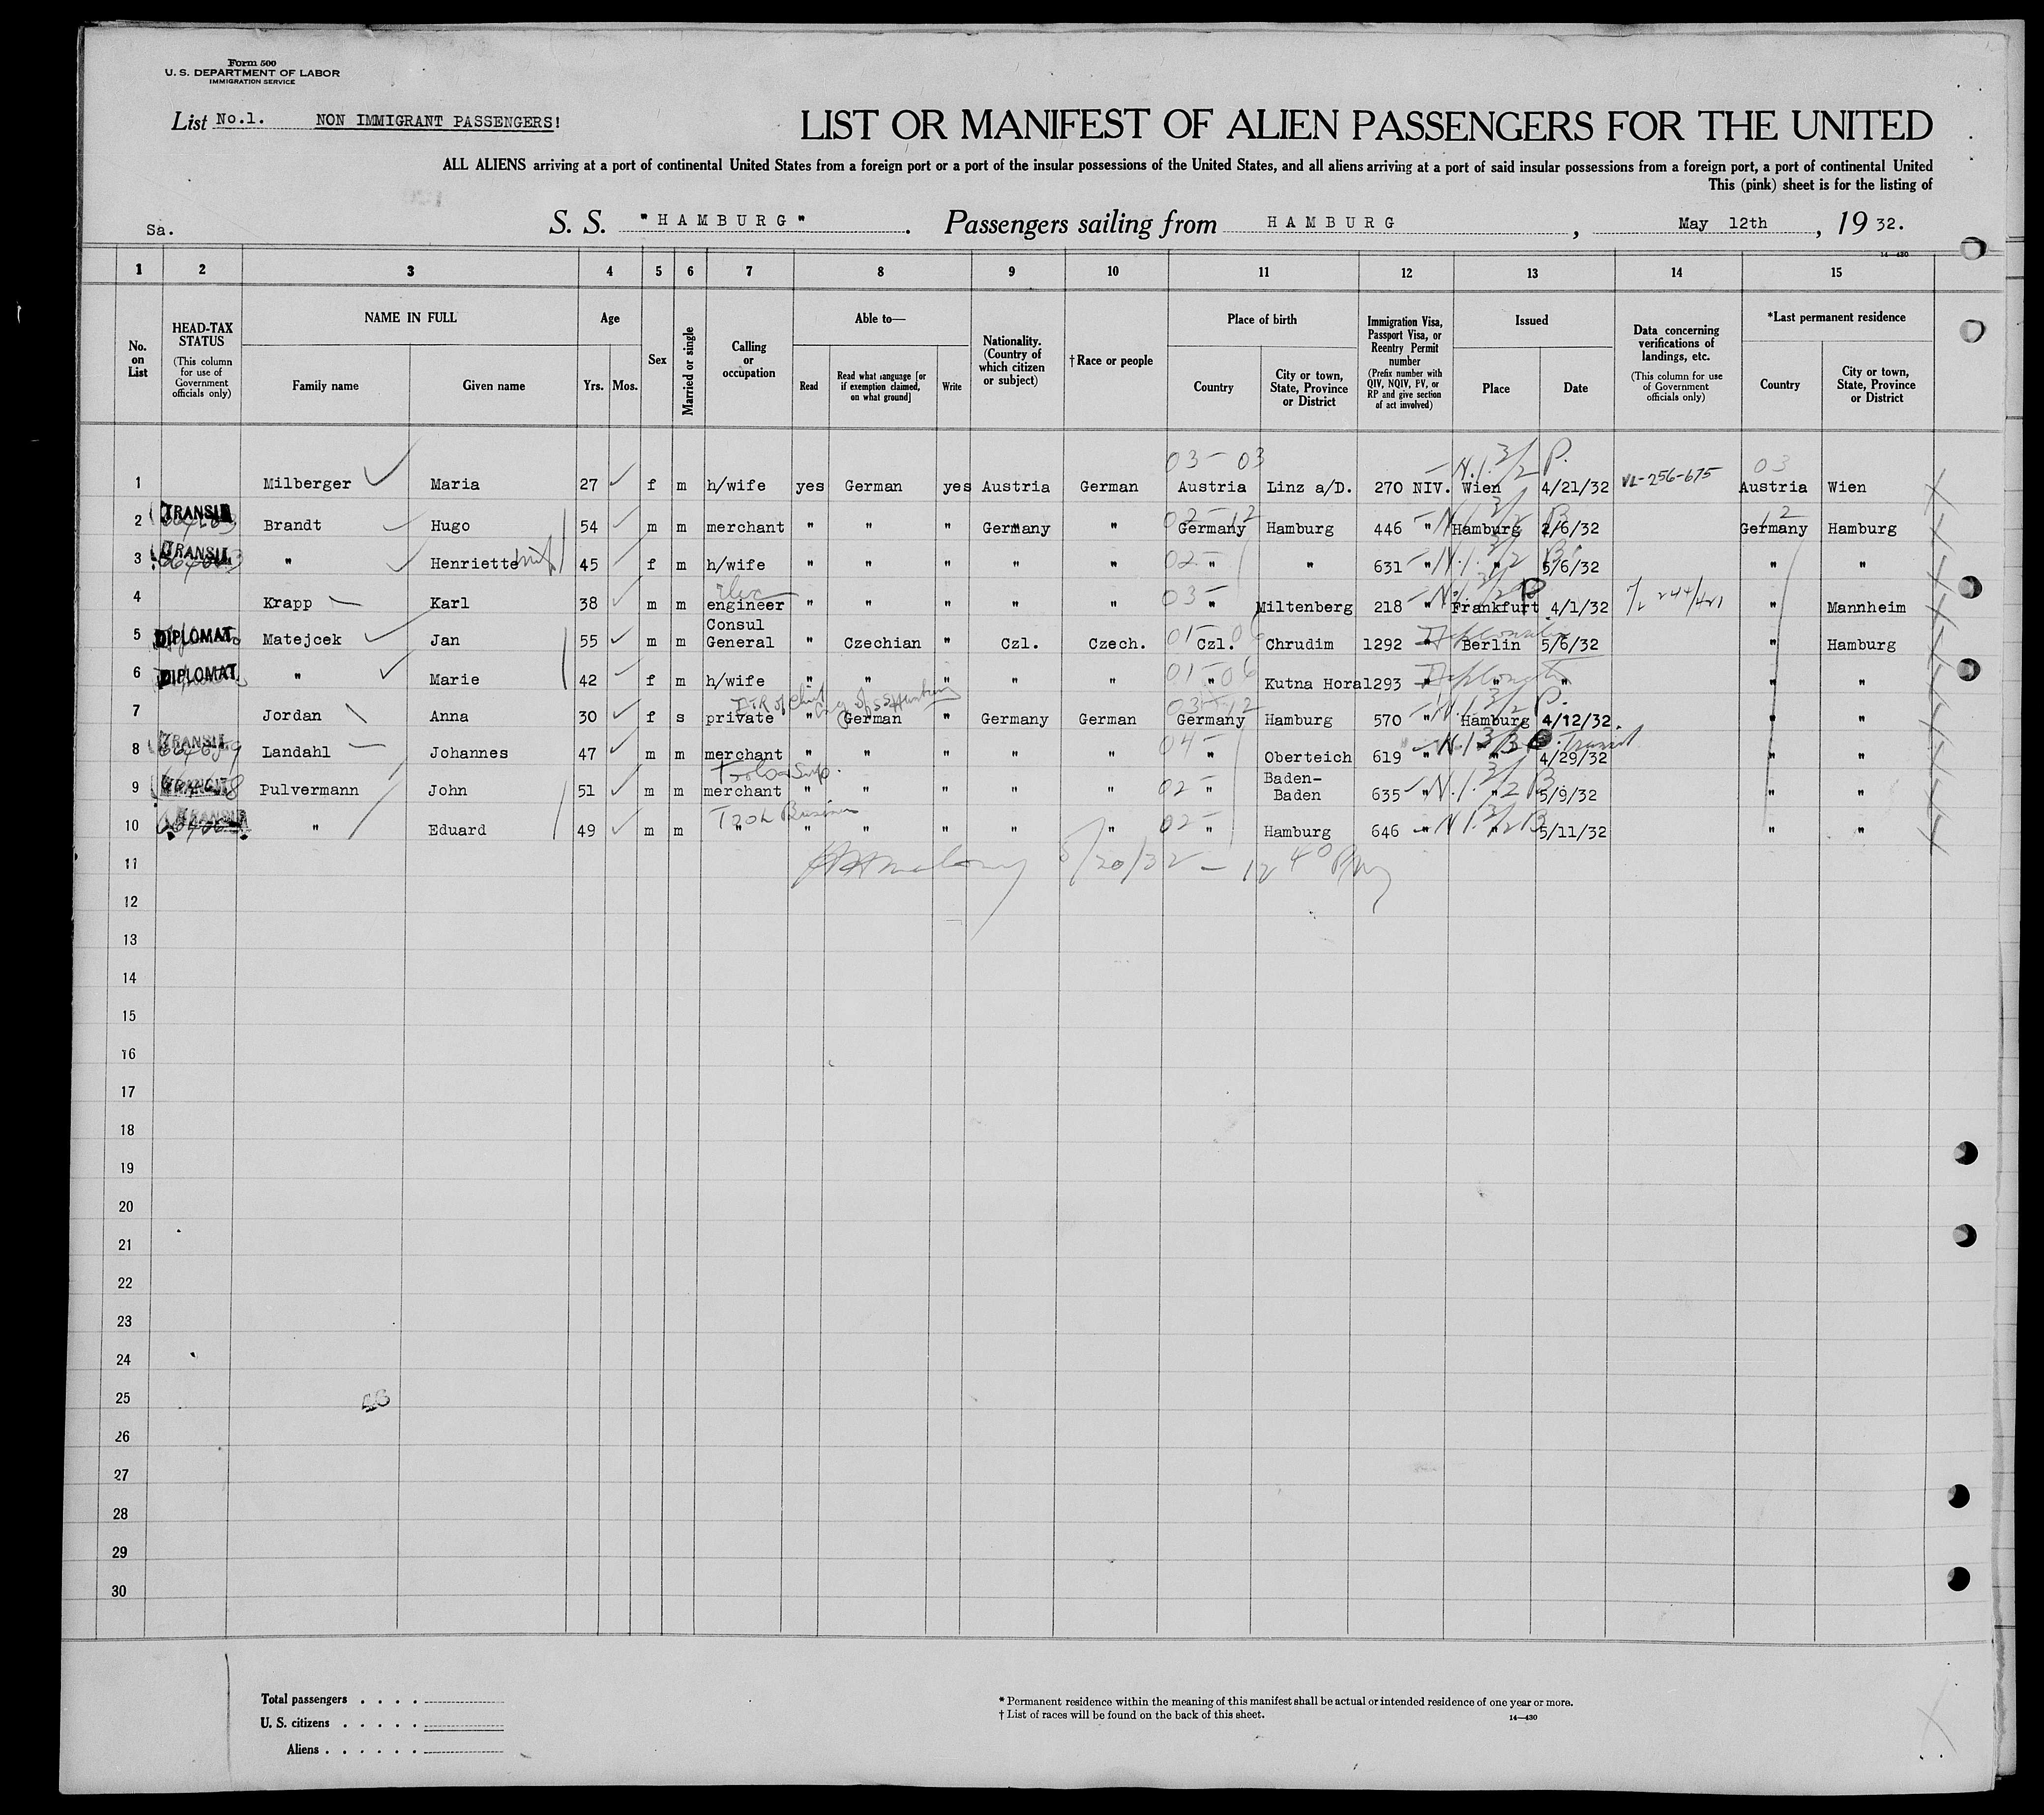 Form 500
U. S. DEPARTMENT OF LABOR
IMMIGRATION SERVICE
List No.1. NON IMMIGRANT PASSENGERS!
LIST OR MANIFEST OF ALIEN PASSENGERS FOR THE UNITED
ALL ALIENS arriving at a port of continental United States from a foreign port or a port of the insular possessions of the United States, and all aliens arriving at a port of said insular possessions from a foreign port, a port of continental United
This (pink) sheet is for the listing of
Sa. S. S. "HAMBURG". Passengers sailing from HAMBURG, May 12th, 19 32.
14-430
1 2 3 4 5 6 7 8 9 10 11 12 13 14 15
No. on List
HEAD-TAX STATUS (This column for use of Government officials only)
NAME IN FULL Family name Given name
Age Yrs. Mos.
Sex
Married or single
Calling or occupation
Able to— Read Read what language [or if exemption claimed, on what ground] Write
Nationality. (Country of which citizen or subject)
†Race or people
Place of birth Country City or town, State, Province or District
Immigration Visa, Passport Visa, or Reentry Permit number (Prefix number with QIV, NQIV, PV, or RP and give section of act involved)
Issued Place Date
Data concerning verifications of landings, etc. (This column for use of Government officials only)
*Last permanent residence Country City or town, State, Province or District
03 - 03 N.1.3/2 P. 03
1 Milberger Maria 27 f m h/wife yes German yes Austria German Austria Linz a/D. 270 NIV. Wien 4/21/32 VL-256-675 Austria Wien
2 TRANSIT Brandt Hugo 54 m m merchant " " " Germany " 02-12 Germany Hamburg 446 " Hamburg 2/6/32 12 Germany Hamburg
3 TRANSIT " Henriette 45 f m h/wife " " " " " 02- " " 631 " N.1.3/2 B " 5/6/32 " "
4 Krapp Karl 38 m m elec engineer " " " " " 03- " Miltenberg 218 " Frankfurt P 4/1/32 " Mannheim
5 DIPLOMAT. Matejcek Jan 55 m m Consul General " Czechian " Czl. Czech. 01-06 Czl. Chrudim 1292 " Diplomatic Berlin 5/6/32 " Hamburg
6 DIPLOMAT. " Marie 42 f m h/wife " " " " " 01-06 " Kutna Hora 1293 " Diplomatic " " " "
7 Jordan Anna 30 f s private " German " Germany German 03-12 Germany Hamburg 570 " N.1.3/2 P. Hamburg 4/12/32. " "
8 TRANSIT Landahl Johannes 47 m m merchant " " " " " 04- " Oberteich 619 " Transit " 4/29/32 " "
9 TRANSIT Pulvermann John 51 m m merchant " " " " " 02- " Baden-Baden 635 " N.1.3/2 B " 5/9/32 " "
10 TRANSIT " Eduard 49 m m " " " " " " 02- " Hamburg 646 " N.1.3/2 B " 5/11/32 " "
11 5/20/32 - 12 40 PM
12
13
14
15
16
17
18
19
20
21
22
23
24
25
26
27
28
29
30
Total passengers . . . .
U. S. citizens . . . . .
Aliens . . . . . .
* Permanent residence within the meaning of this manifest shall be actual or intended residence of one year or more.
† List of races will be found on the back of this sheet.
14—430